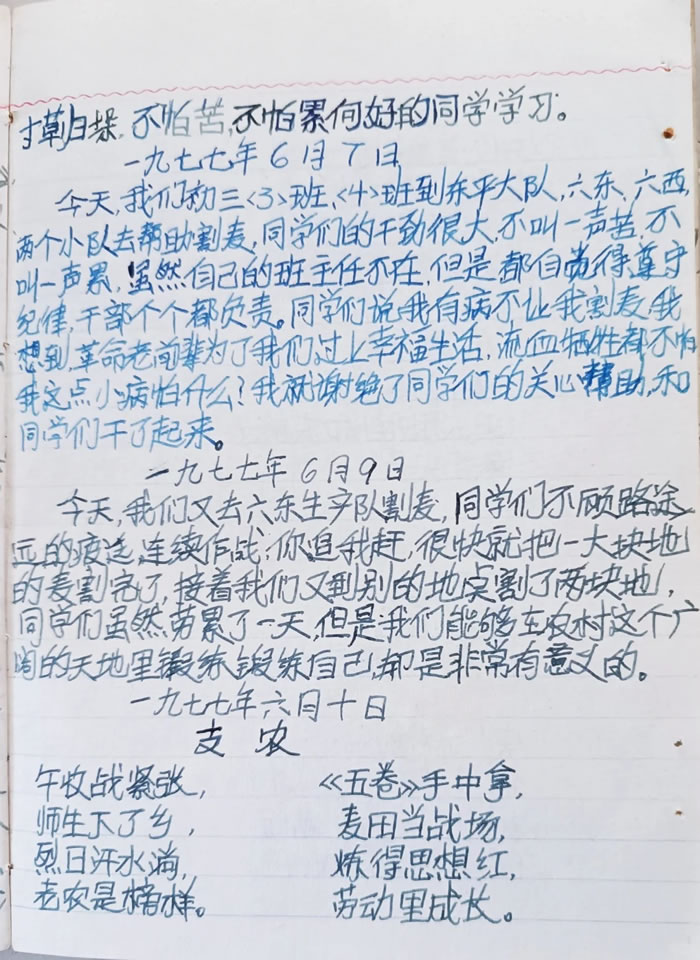 草归垛,不怕苦,不怕累向好的同学学习。
一九七七年6月7日
今天,我们初三<3>班,<4>班到东平大队,六东、六西,
两个小队去帮助割麦,同学们的干劲很大,不叫一声苦,不
叫一声累,虽然自己的班主任不在,但是都自觉得遵守
纪律,干部个个都负责。同学们说我有病不让我割麦,我
想到,革命老前辈为了我们过上幸福生活,流血牺牲都不怕
我这点小病怕什么?我就谢绝了同学们的关心帮助,和
同学们干了起来。
一九七七年6月9日
今天,我们又去六东生产队割麦,同学们不顾路途
远的疲这,连续作战,你追我赶,很快就把一大块地
的麦割完了,接着我们又到别的地点割了两块地,
同学们虽然劳累了一天,但是我们能够在农村这个广
阔的天地里锻练锻练自己,却是非常有意义的。
一九七七年六月十日
支农
午收战紧张, 《五卷》手中拿,
师生下了乡, 麦田当战场,
烈日汗水淌, 炼得思想红,
老农是榜样。 劳动里成长。